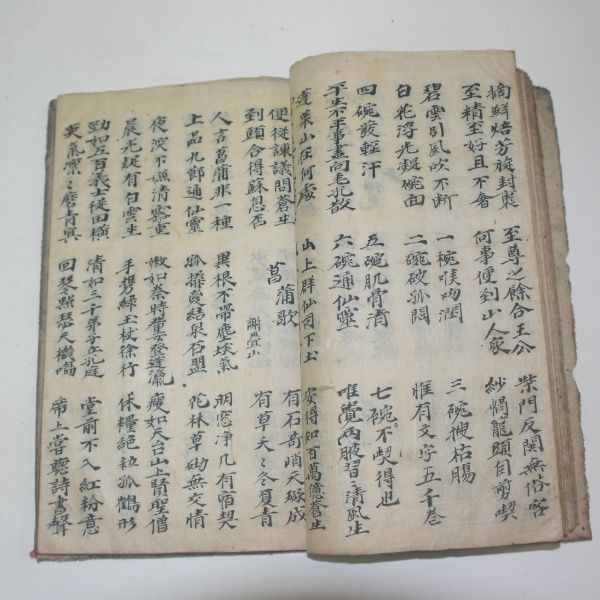 摘鮮焙芳旋封裹
至精至好且不奢
至尊之餘合王公
何事便到山人家
柴門反關無俗客
紗帽籠頭自剪喫
碧雲引風吹不斷
白花浮光凝碗面
一碗喉吻潤
二碗破孤悶
三碗搜枯腸
惟有文字五千卷
四碗發輕汗
平生不平事盡向毛孔散
五碗肌骨清
六碗通仙靈
七碗不喫得也
唯覺兩腋習習清風生
蓬萊山在何處
山上群仙司下土
安得知百萬億蒼生
便從諫議問蒼生
到頭合得蘇息否
菖蒲歌
謝疊山
有石奇峭天琢成
有草夭〻冬夏青
人言菖蒲非一種
上品九節通仙靈
異根不帶塵埃氣
孤操愛結泉石盟
明窓淨几有宿契
花林草砌無交情
夜深不嫌清露重
晨光疑有白雲生
嫩如秦時童女登蓬瀛
手携綠玉杖徐行
瘦如天台山上賢聖僧
休糧絕粒孤鶴形
勁如五百義士從田橫
英氣凛〻磨青冥
清如三千弟子立孔庭
回琴點瑟天機鳴
堂前不入紅粉意
席上嘗聽詩書聲